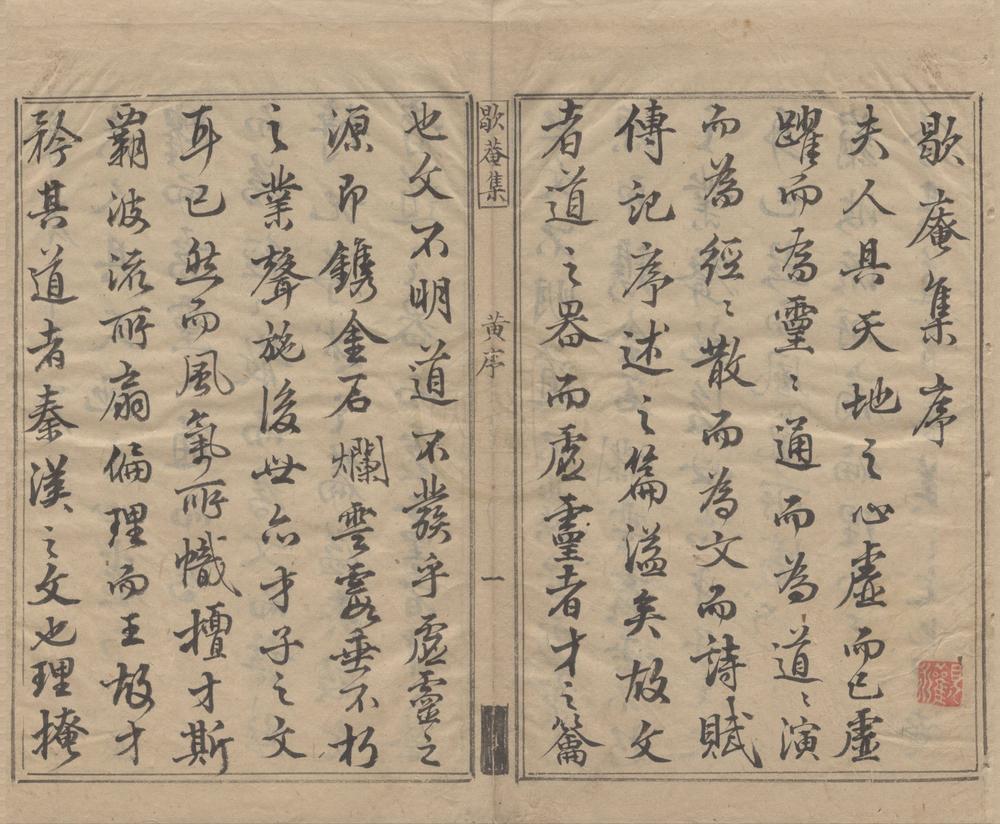 歇庵集序
夫人具天地之心虛而已虛
躍而為靈〻通而為道〻演
而為經〻散而為文而詩賦
傳記序述之篇溢矣故文
者道之器而虛靈者才之籥
歇菴集
黄序
一
也文不明道不發乎虛靈之
源即鐫金石爛雲霞垂不朽
之業聲施後世亦才子之文
耳已然而風氣所幟擅才斯
霸波流所扇偏理而王故才
矜其道者秦漢之文也理掩